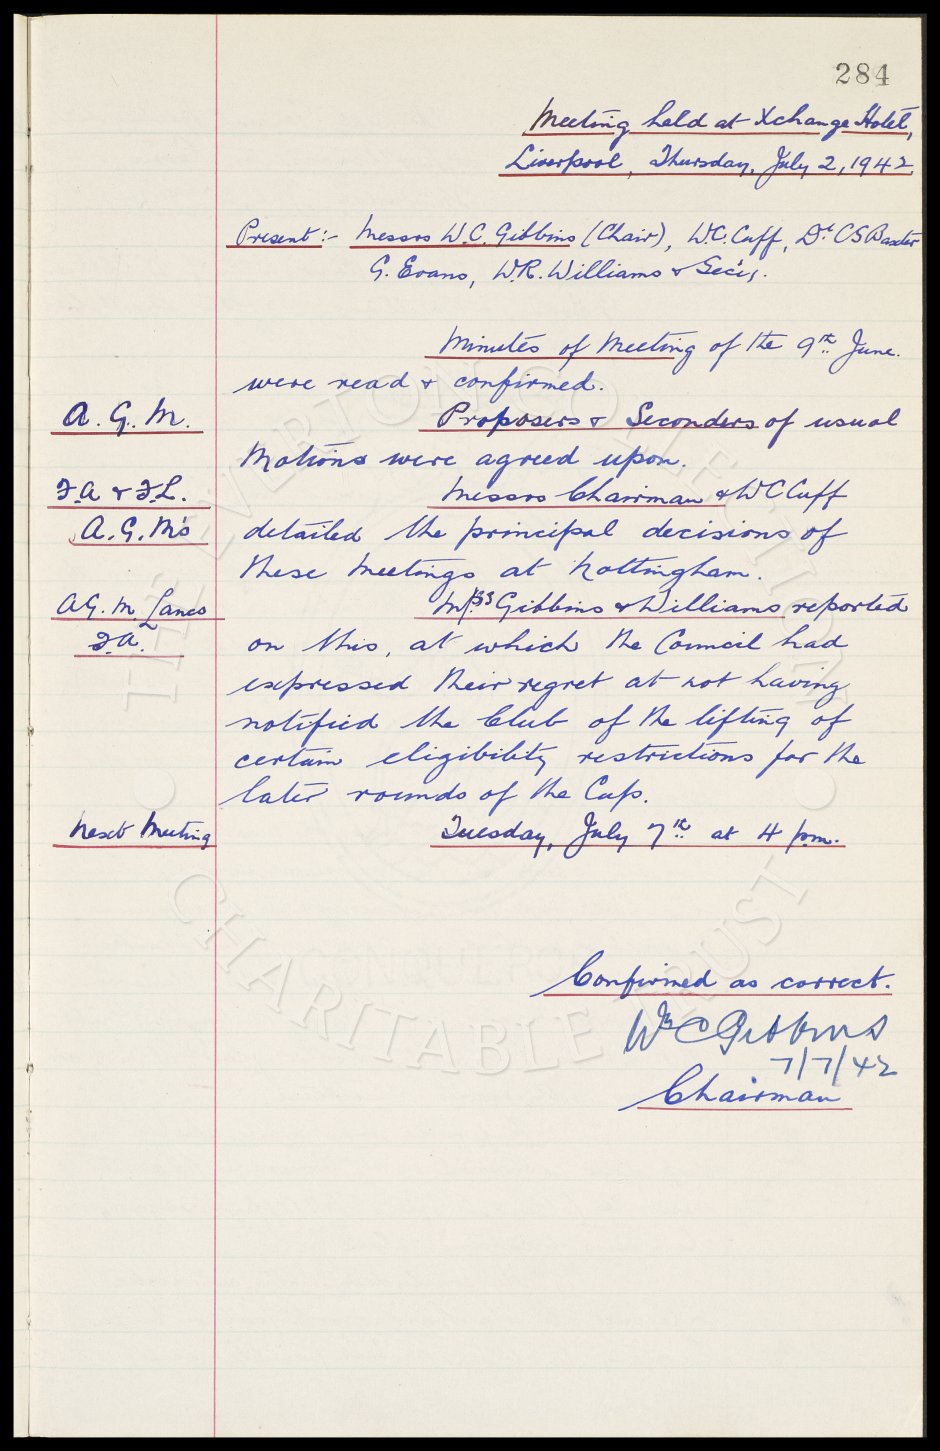 284
Meeting held at Xchange Hotel,
Liverpool, Thursday, July 2, 1942
Present:- Messrs W.C. Gibbins (Chair), W.C. Cuff, Dr. C S Baxter
G. Evans, W.R. Williams & Sec'y.
Minutes of Meeting of the 9th June.
were read & confirmed.
A. G. M. Proposers & Seconders of usual
Motions were agreed upon.
F.A & F.L. Messrs Chairman & W C Cuff
A. G. M's detailed the principal decisions of
these Meetings at Nottingham.
A G. M. Lancs Gibbins & Williams reported
F.A. on this, at which the Council had
expressed their regret at not having
notified the Club of the lifting of
certain eligibility restrictions for the
later rounds of the Cup.
Next Meeting Tuesday, July 7th at 4 p.m.
Confirmed as correct.
Wm C Gibbins
7/7/42
Chairman
THE EVERTON COLLECTION
CHARITABLE TRUST